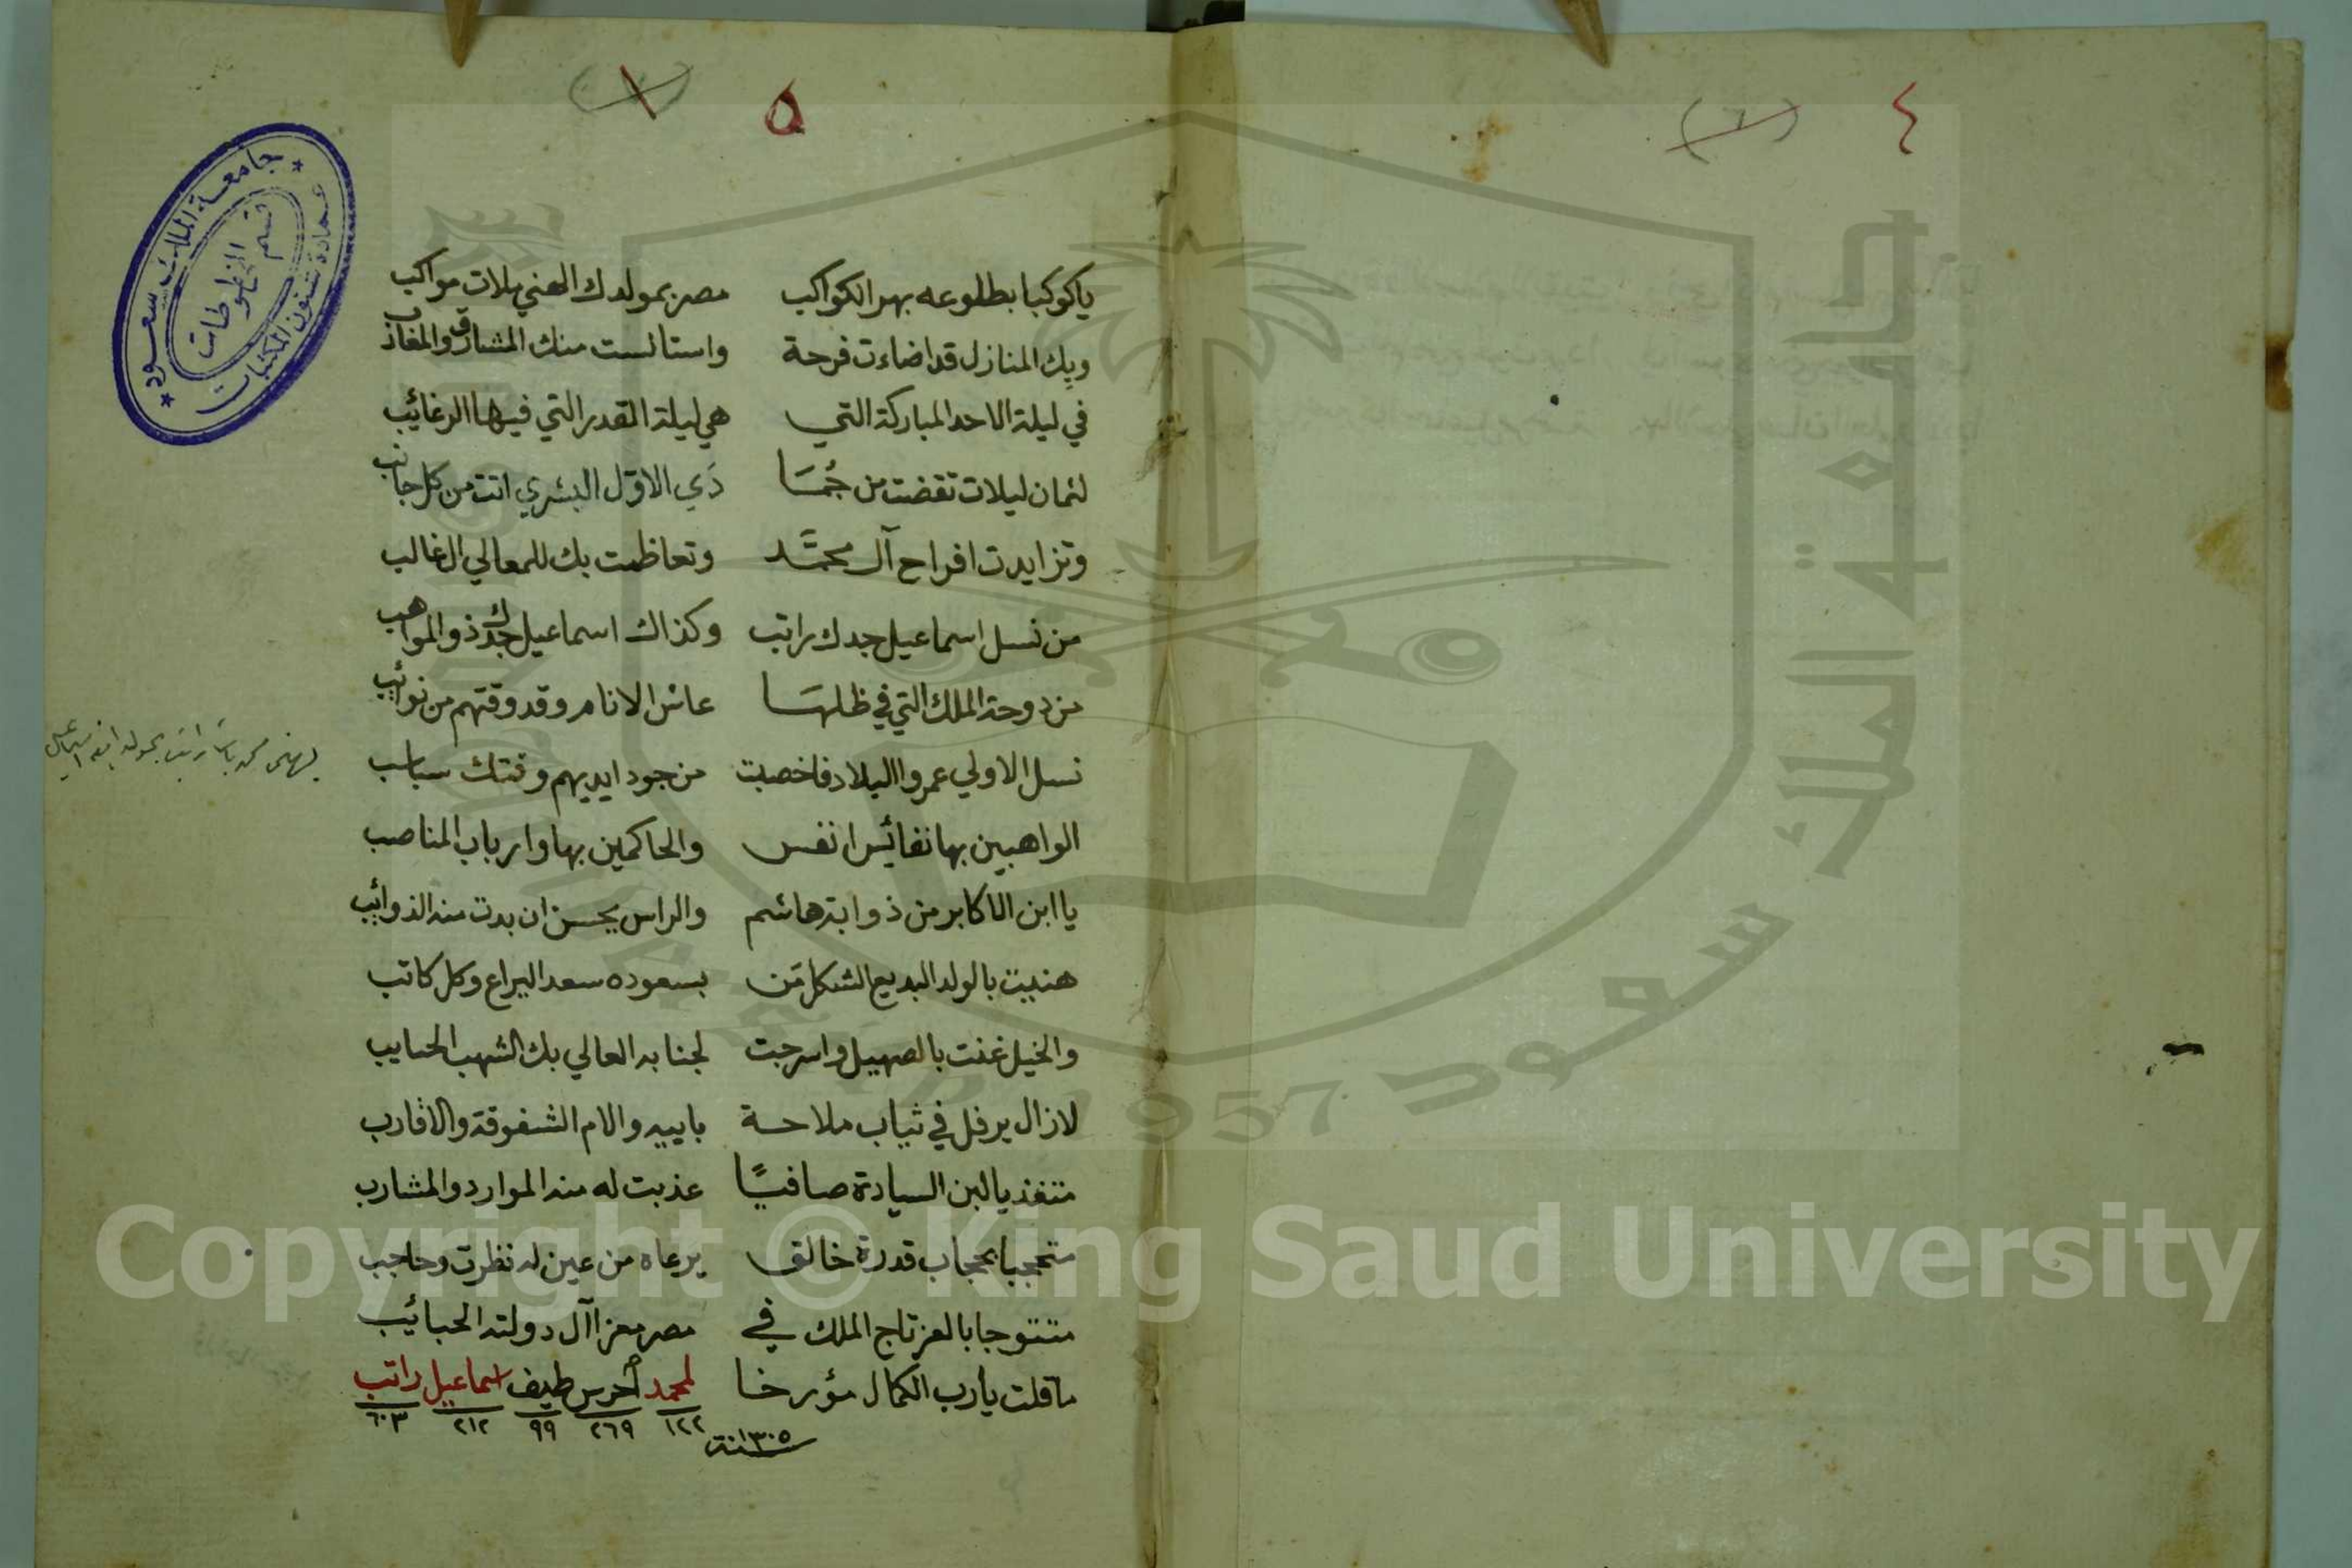 ٤
(٦)
٥
ياكوكبا بطلوعه بهر الكواكب مصر بمولدك الهني ملات مواكب
وبك المنازل قد اضاءت فرحة واستانست منك المشارق والمغارب
في ليلة الاحد المباركة التي هي ليلة القدر التي فيها الرغائب
لثمان ليلات تقضت من جُمَسَا دَي الاوّل البشري اتت من كل جانب
وتزايدت افراح آل محمَّد وتعاظمت بك للمعالي ال غالب
من نسل اسماعيل جدك راتب وكذاك اسماعيل جدك ذو المواهب
من دوحة الملك التي في ظلهَسا عاش الانام وقد وقتهم من نوائب
نسل الاولي عمروا البلاد فاخصبت من جود ايديهم وقتك سباسب
الواهبين بها نفائس انفس والحاكمين بها وارباب المناصب
يا ابن الاكابر من ذوابة هاشم والراس يحسن ان بدت منه الذوائب
هنيت بالولد البديع الشكل مَن بسعوده سعد اليراع وكل كاتب
والخيل غنت بالصهيل واسرجت لجنابه العالي بك الشهب الحبايب
لازال يرفل في ثياب ملاحة بابيه والام الشفوقة والاقارب
متغذيا لبن السيادة صافيًا عذبت له منه الموارد والمشارب
متحجبا بحجاب قدرة خالق يرعاه من عين له نظرت وحاجب
متتوجا بالعز تاج الملك في مصر معزا آل دولته الحبائب
ما قلت يارب الكمال مؤرخا لمحمد أحرس طيف اسماعيل راتب
١٢٢ ٢٦٩ ٩٩ ٢١٢ ٦٠٣
سنة ١٣٠٥
يهنى محمد باشا راتب بمولد ابنه اسماعيل
جامعة الملك سعود
عمادة شئون المكتبات
قسم المخطوطات
جامعة الملك سعود
1957
Copyright © King Saud University